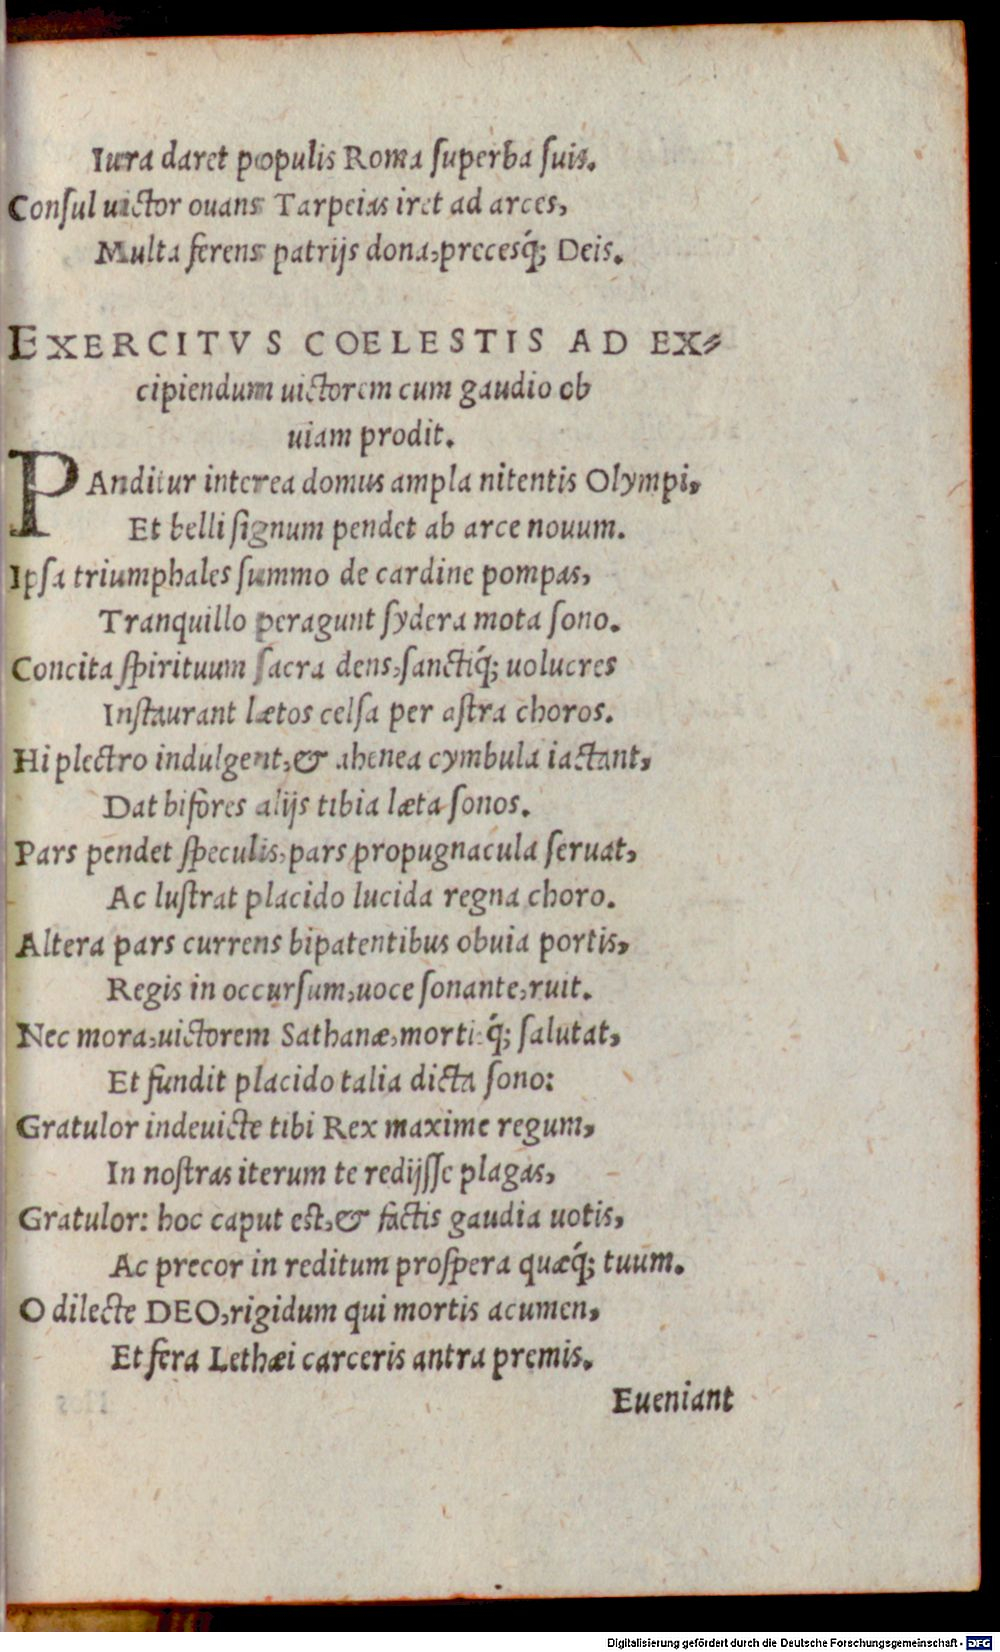 Iura daret populis Roma ſuperba ſuis.
Conſul uictor ouans Tarpeias iret ad arces,
Multa ferens patrijs dona,precesq́; Deis.
EXERCITVS COELESTIS AD EX⸗
cipiendum uictorem cum gaudio ob
uiam prodit.
PAnditur interea domus ampla nitentis Olympi,
Et belli ſignum pendet ab arce nouum.
Ipſa triumphales ſummo de cardine pompas,
Tranquillo peragunt ſydera mota ſono.
Concita ſpirituum ſacra dens,ſanctiq́; uolucres
Inſtaurant lætos celſa per aſtra choros.
Hi plectro indulgent,& ahenea cymbula iactant,
Dat bifores alijs tibia læta ſonos.
Pars pendet ſpeculis,pars propugnacula ſeruat,
Ac luſtrat placido lucida regna choro.
Altera pars currens bipatentibus obuia portis,
Regis in occurſum,uoce ſonante,ruit.
Nec mora,uictorem Sathanæ,mortiq́; ſalutat,
Et fundit placido talia dicta ſono:
Gratulor indeuicte tibi Rex maxime regum,
In noſtras iterum te redijſſe plagas,
Gratulor: hoc caput eſt,& factis gaudia uotis,
Ac precor in reditum proſpera quæq́; tuum.
O dilecte DEO,rigidum qui mortis acumen,
Et fera Lethæi carceris antra premis.
Eueniant
Digitalisierung gefördert durch die Deutsche Forschungsgemeinschaft - DFG